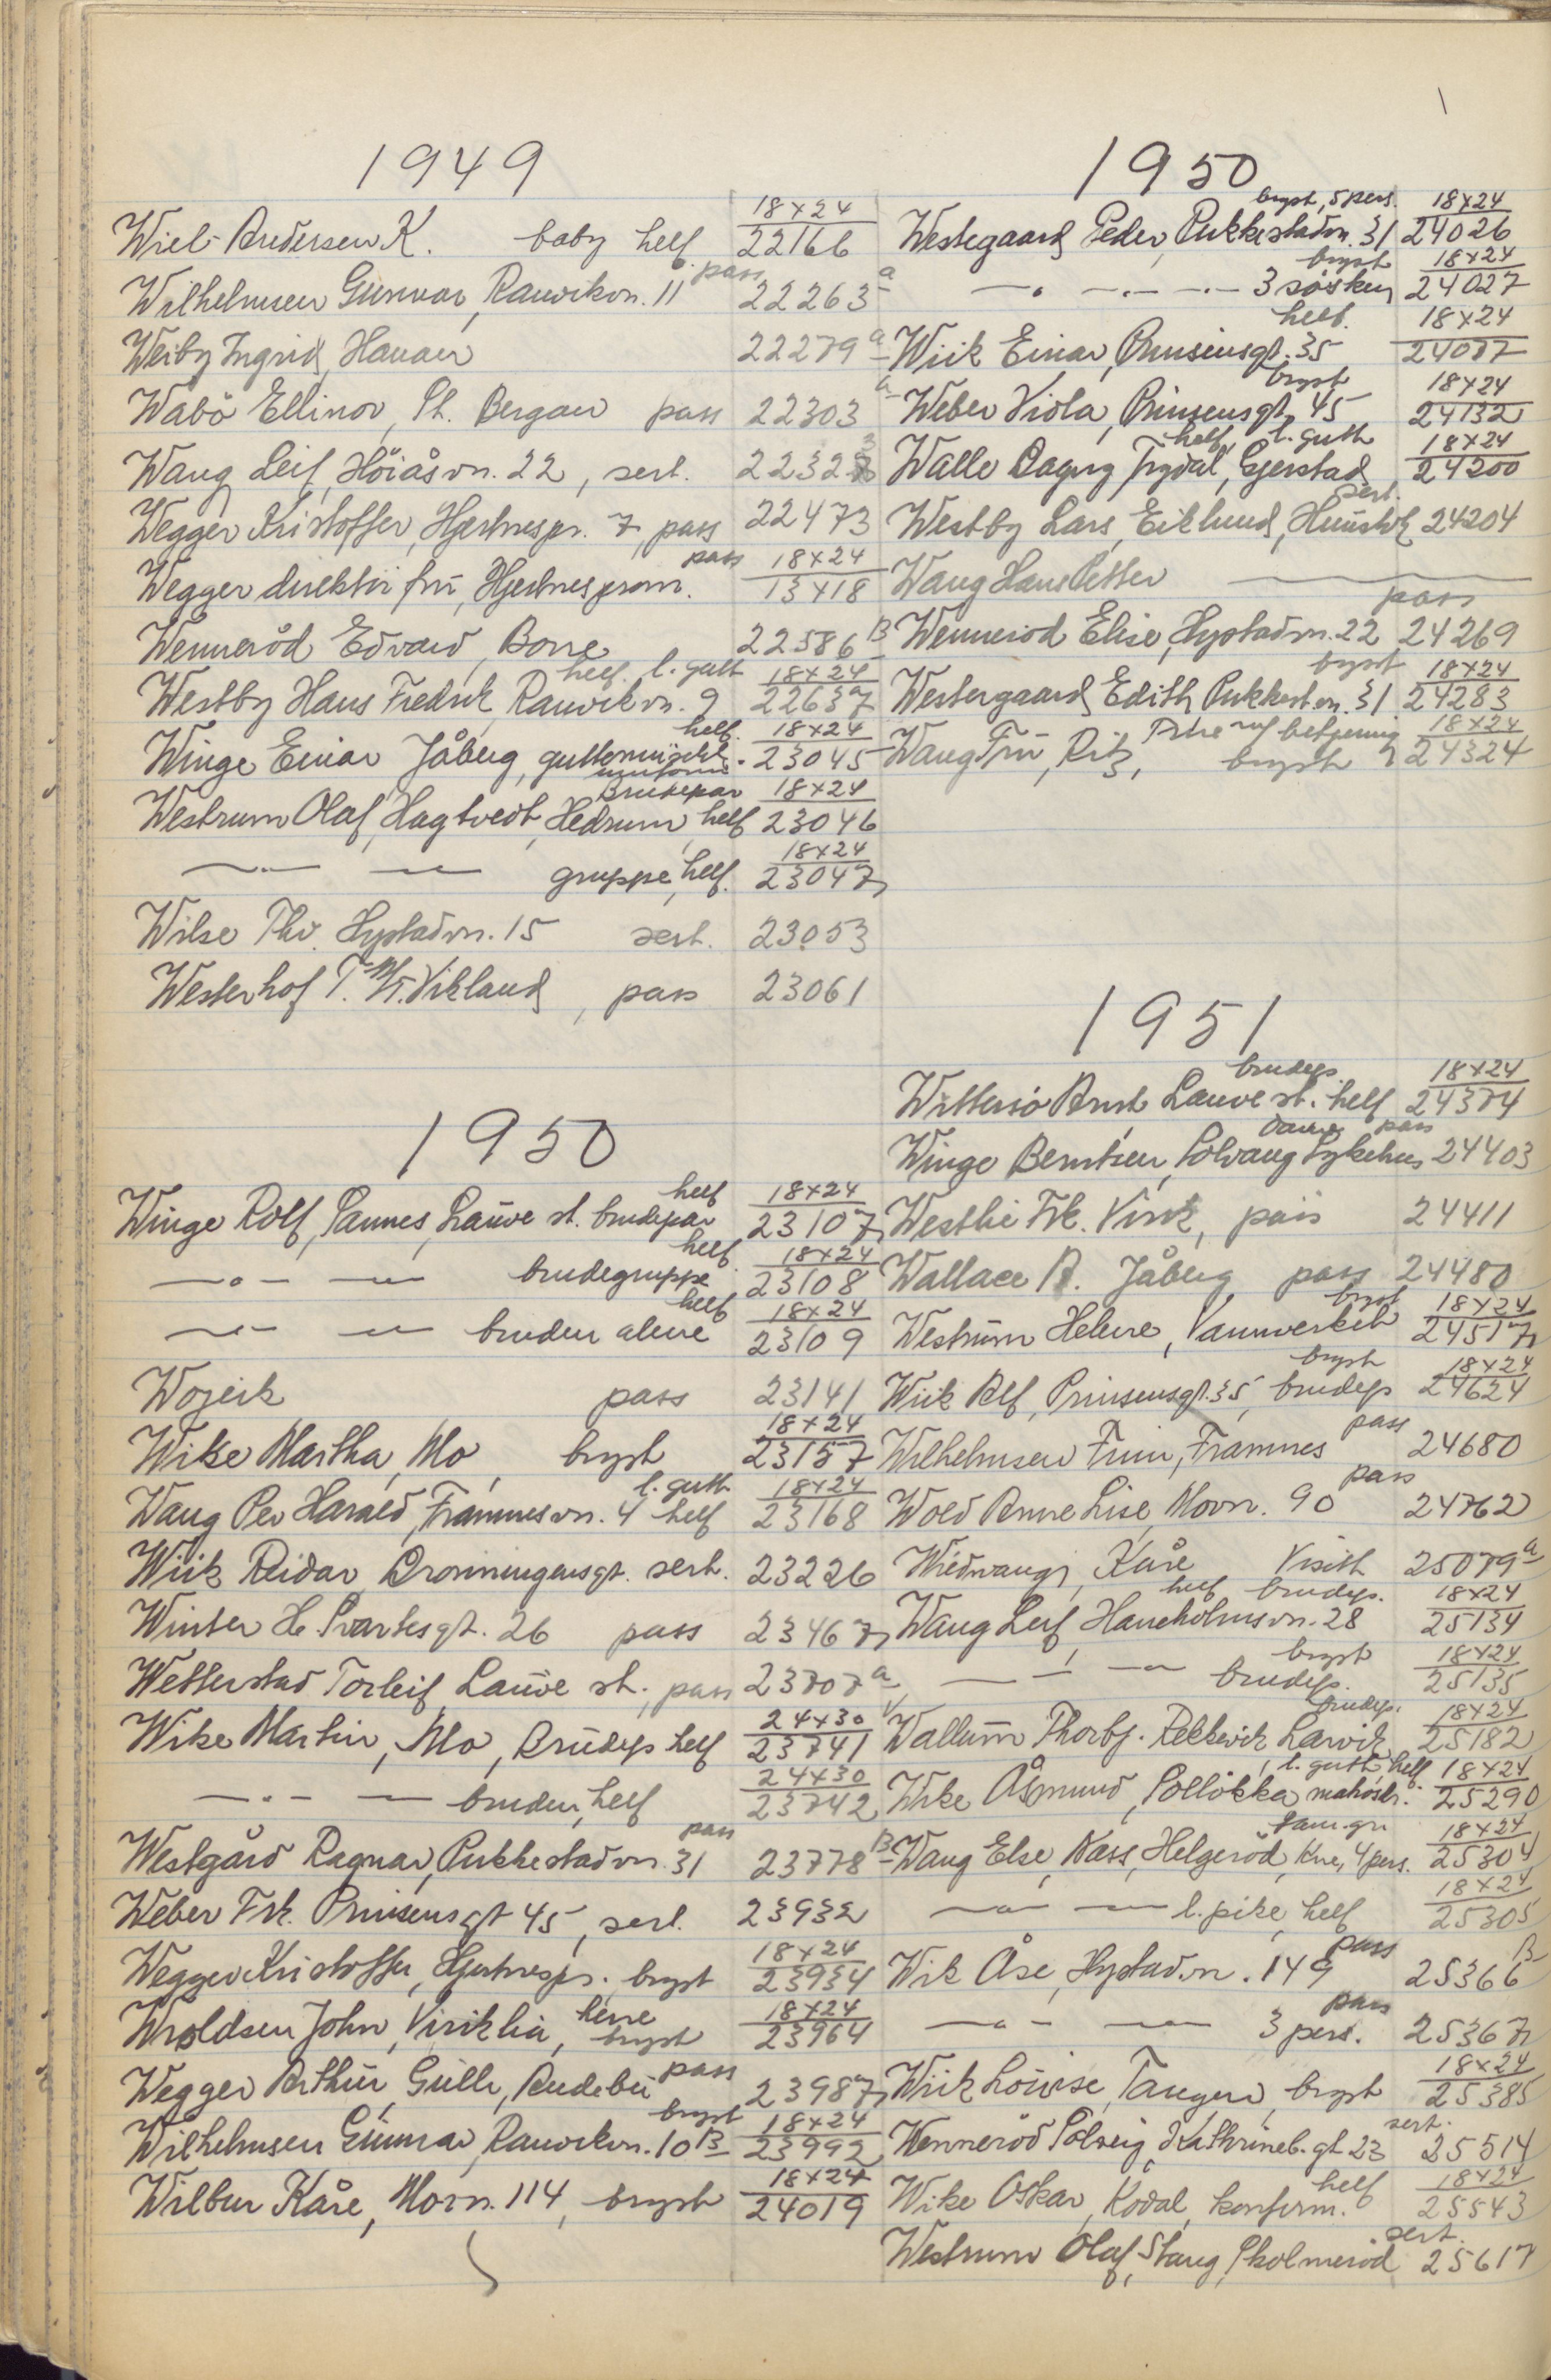 1949
Wiel-Andersen K. baby helf. 18x24 22166
Wilhelmsen Gunnar, Ranvikvn. 11 pass 22263 a
Weiby Ingrid, Hanan 22279 a
Wabö Ellinor, St. Bergan pass 22303 a
Wang Leif, Höiåsvn. 22, sert. 22328
Wegger Kristoffer, Hjertnespr. 7, pass 22473
Wegger direktör fru, Hjertnesprom. pass 18x24 13418
Wenneröd Edvard, Borre 22586 B
Westby Hans Fredrik, Ranvikvn. 9 helf. l. gutt 18x24 22637
Winge Einar Jåberg, guttemusikk. uniform helf. 18x24 23045
Westrum Olaf, Hagtvedt, Hedrum, Brudepar helf 18x24 23046
—"— —"— gruppe, helf. 18x24 23047
Wilse Thv. Hystadvn. 15 sert. 23053
Westerhof T. M/T. Vikland, pass 23061
1950
Winge Rolf, Sannes, Lauve st. brudepar helf 18x24 23107
—"— —"— brudegruppe helf. 18x24 23108
—"— —"— bruden alene helf 18x24 23109
Wojcik pass 23141
Wike Martha, Mo, bryst 18x24 23157
Wang Per Harald, Framnesvn. 4 l. gutt helf 18x24 23168
Wiik Reidar, Dronningensgt. sert. 23226
Winter H. Svartesgt. 26 pass 23467
Wetterstad Torleif, Lauve st., pass 23707 a
Wike Martin, Mo, Brudep helf 24x30 23741
—"— — bruden, helf 24x30 23742
Westgård Ragnar, Pukkestadvn. 31 pass 23778 B
Weber Frk. Prinsensgt 45, sert. 23932
Wegger Kristoffer, Hjertnespr. bryst 18x24 23934
Wroldsen John, Viriklia, herre bryst 18x24 23964
Wegger Arthur, Gulli, Andebu pass 23987
Wilhelmsen Gunnar, Ranvikvn. 10 B bryst 18x24 23992
Wilbur Kåre, Movn. 114, bryst 18x24 24019
1950
Westegaard Peder, Pukkestadvn. 31 bryst, 5 pers. 18x24 24026
—"— —"— 3 søsken bryst 18x24 24027
Wiik Einar, Prinsensgt. 35 helf. 18x24 24077
Weber Viola, Prinsensgt. 45 bryst 18x24 24132
Walle Dagny Trydal, Gjerstad helf, l. gutt 18x24 24200
Westby Lars, Eiklund, sert. 24204
Wang Hans Petter
Wenneröd Elise, Hystadvn. 22 pass 24269
Westergaard Edith, Pukkest.vn. 31 bryst 18x24 24283
Wang Fru, Ritz, bryst 18x24 24324
1951
Wittersö Arnt, Lauve st. brudep. helf 18x24 24374
Winge Berntsen, Solvang Sykehus pass 24403
Westlie Frk. Virik, pass 24411
Wallace A. Jåberg pass 24480
Westrum Helene, Vannverket bryst 18x24 24517
Wiik Alf, Prinsensgt. 35, brudep bryst 18x24 24624
Wilhelmsen Finn, Framnes pass 24680
Wold Anne Lise, Movn. 90 pass 24762
Wiedwang, Kåre Visitt 25079 a
Wang Leif, Haneholmsvn. 28 helf brudep. 18x24 25134
—"— —"— brudep. bryst 18x24 25135
Wallum Thorbj. Rekkevik Larvik brudep. 18x24 25182
Wike Åsmund, Solløkka l. gutt, helf matrosdr. 18x24 25290
Wang Else, Nass, Helgeröd, fam.gr. kne, 4 pers. 18x24 25304
—"— —"— l. pike, helf 18x24 25305
Wik Åse, Hystadvn. 149 pass 25366 B
—"— —"— 3 pers. pass 25367
Wiik Lovise, Tangen, bryst 18x24 25385
Wenneröd Solveig, Kathrineb. gt 23 sert. 25514
Wike Oskar, Kodal, konfirm. helf 18x24 25543
Westrum Olaf, Stang, Skolmeröd sert. 25617